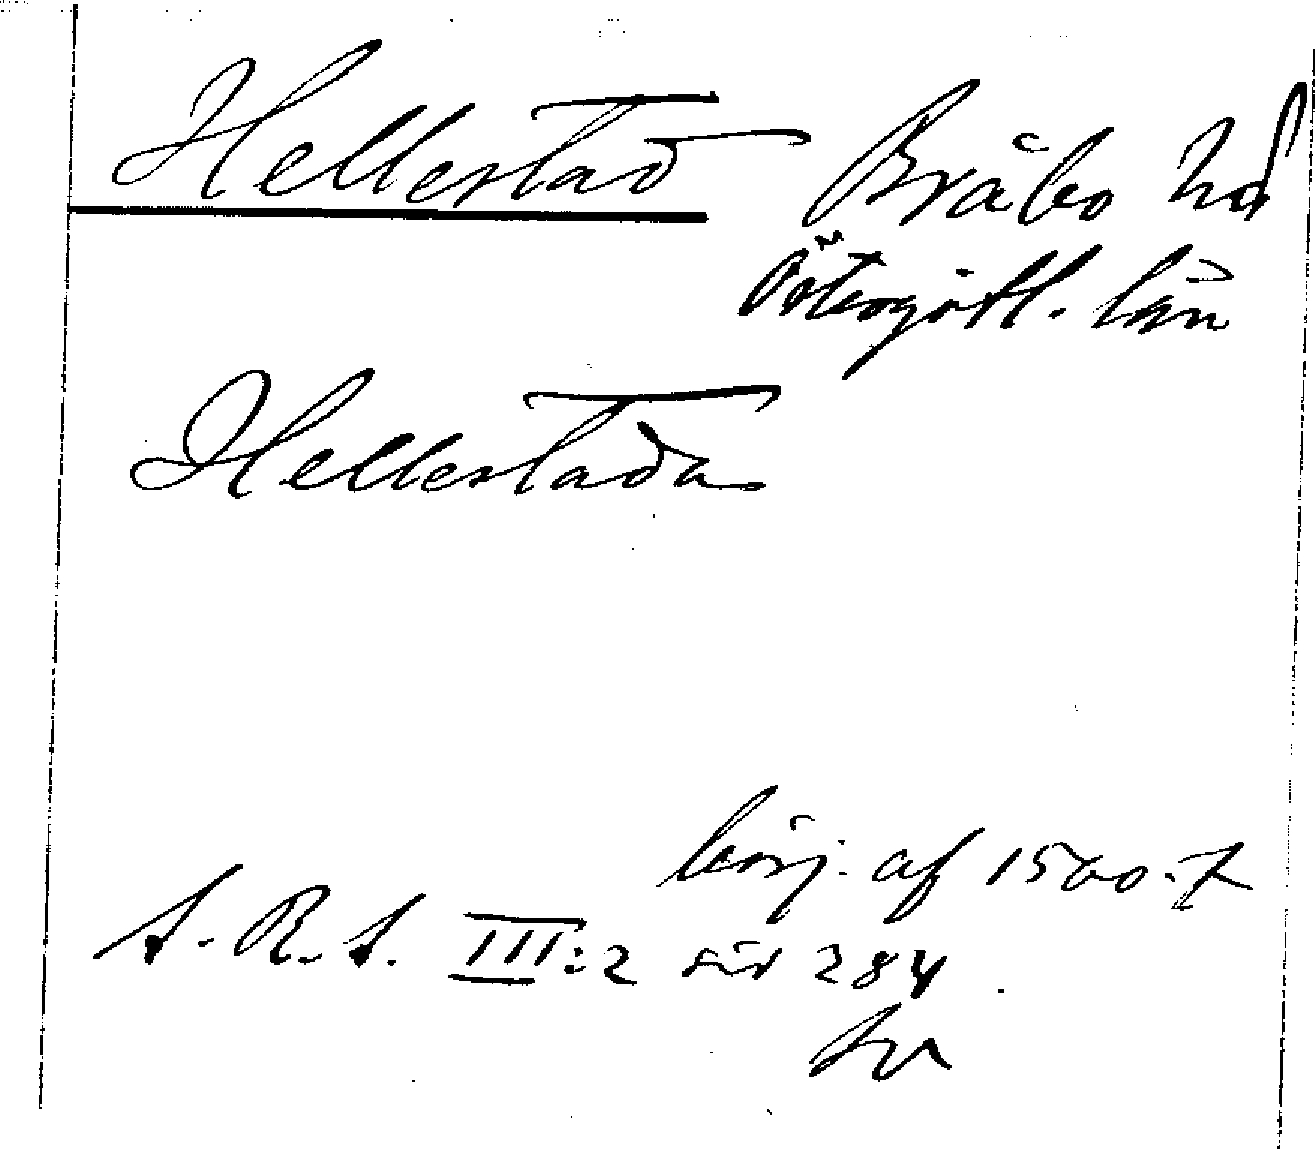 Hellestad Bråbo hd
Östergötl. län
Hellestada
börj. af 1500-t
S. R. S. III:2 sid 284